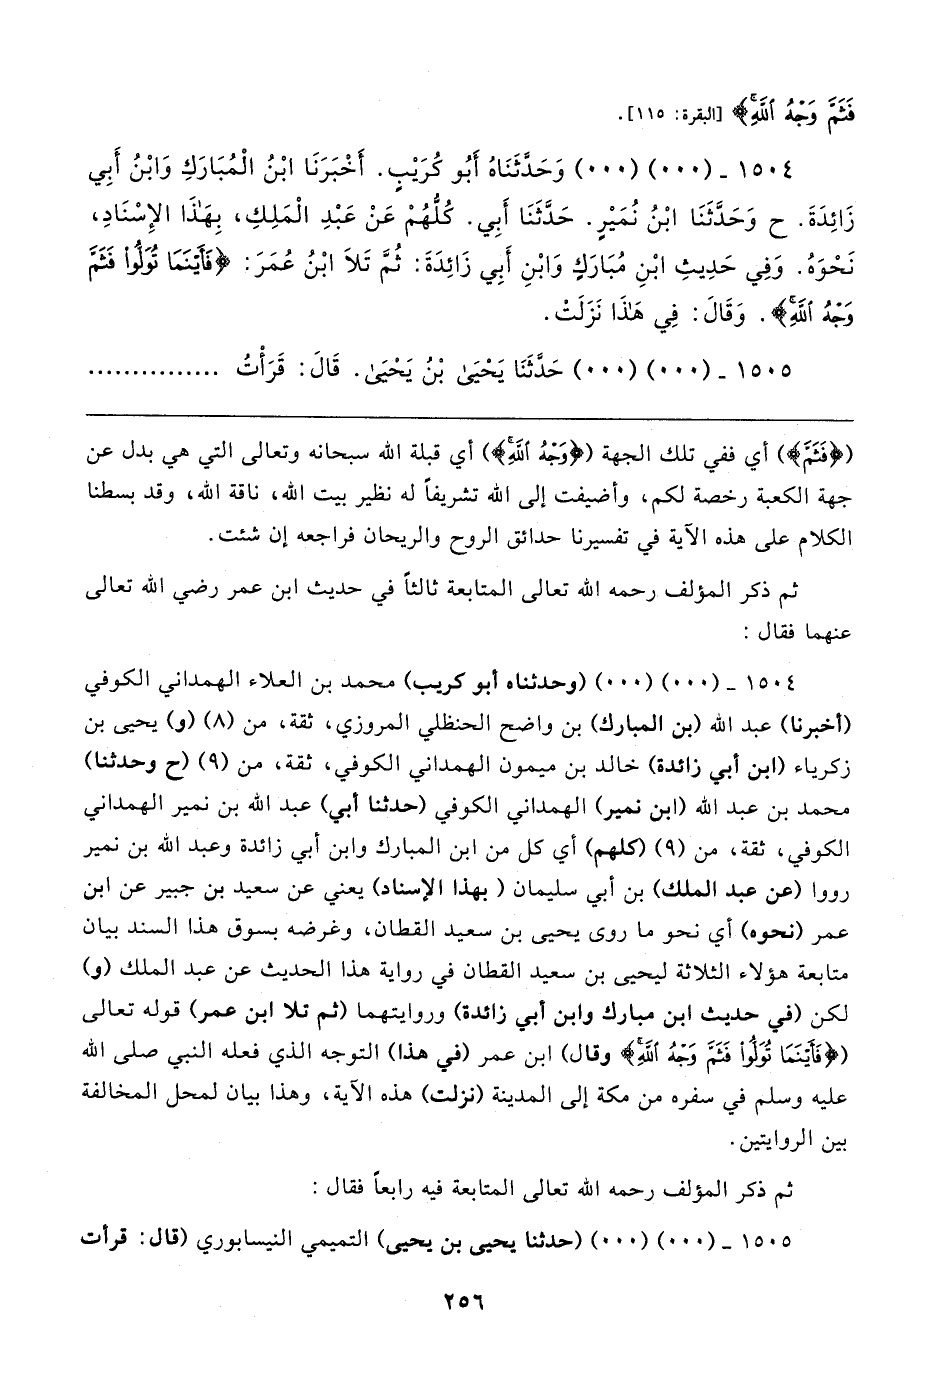 فَثَمَّ وَجْهُ ٱللَّهِ﴾ [البقرة: ١١٥].
١٥٠٤ ـ (٠٠٠) (٠٠٠) وَحَدَّثَنَاهُ أَبُو كُرَيْبٍ. أَخْبَرَنَا ابْنُ الْمُبَارَكِ وَابْنُ أَبِي
زَائِدَةَ. ح وَحَدَّثَنَا ابْنُ نُمَيْرٍ. حَدَّثَنَا أَبِي. كُلُّهُمْ عَنْ عَبْدِ الْمَلِكِ، بِهَٰذَا الإِسْنَادِ،
نَحْوَهُ. وَفِي حَدِيثِ ابْنِ مُبَارَكٍ وَابْنِ أَبِي زَائِدَةَ: ثُمَّ تَلاَ ابْنُ عُمَرَ: ﴿فَأَيْنَمَا تُوَلُّواْ فَثَمَّ
وَجْهُ ٱللَّهِ﴾. وَقَالَ: فِي هَٰذَا نَزَلَتْ.
١٥٠٥ ـ (٠٠٠) (٠٠٠) حَدَّثَنَا يَحْيَىٰ بْنُ يَحْيَىٰ. قَالَ: قَرَأْتُ ...............
(﴿فَثَمَّ﴾) أي ففي تلك الجهة (﴿وَجْهُ ٱللَّهِ﴾) أي قبلة الله سبحانه وتعالى التي هي بدل عن
جهة الكعبة رخصة لكم، وأضيفت إلى الله تشريفاً له نظير بيت الله، ناقة الله، وقد بسطنا
الكلام على هذه الآية في تفسيرنا حدائق الروح والريحان فراجعه إن شئت.
ثم ذكر المؤلف رحمه الله تعالى المتابعة ثالثاً في حديث ابن عمر رضي الله تعالى
عنهما فقال:
١٥٠٤ ـ (٠٠٠) (٠٠٠) (وحدثناه أبو كريب) محمد بن العلاء الهمداني الكوفي
(أخبرنا) عبد الله (بن المبارك) بن واضح الحنظلي المروزي، ثقة، من (٨) (و) يحيى بن
زكرياء (ابن أبي زائدة) خالد بن ميمون الهمداني الكوفي، ثقة، من (٩) (ح وحدثنا)
محمد بن عبد الله (ابن نمير) الهمداني الكوفي (حدثنا أبي) عبد الله بن نمير الهمداني
الكوفي، ثقة، من (٩) (كلهم) أي كل من ابن المبارك وابن أبي زائدة وعبد الله بن نمير
رووا (عن عبد الملك) بن أبي سليمان ( بهذا الإسناد) يعني عن سعيد بن جبير عن ابن
عمر (نحوه) أي نحو ما روى يحيى بن سعيد القطان، وغرضه بسوق هذا السند بيان
متابعة هؤلاء الثلاثة ليحيى بن سعيد القطان في رواية هذا الحديث عن عبد الملك (و)
لكن (في حديث ابن مبارك وابن أبي زائدة) وروايتهما (ثم تلا ابن عمر) قوله تعالى
(﴿فَأَيْنَمَا تُوَلُّواْ فَثَمَّ وَجْهُ ٱللَّهِ﴾ وقال) ابن عمر (في هذا) التوجه الذي فعله النبي صلى الله
عليه وسلم في سفره من مكة إلى المدينة (نزلت) هذه الآية، وهذا بيان لمحل المخالفة
بين الروايتين.
ثم ذكر المؤلف رحمه الله تعالى المتابعة فيه رابعاً فقال:
١٥٠٥ ـ (٠٠٠) (٠٠٠) (حدثنا يحيى بن يحيى) التميمي النيسابوري (قال: قرأت
٢٥٦